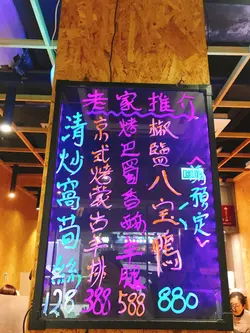 老家推介
椒鹽八宝鴨 880
預定
烤巴蜀香酥羊腿 588
京式烤蒙古羊排 388
清炒窩荀絲 128